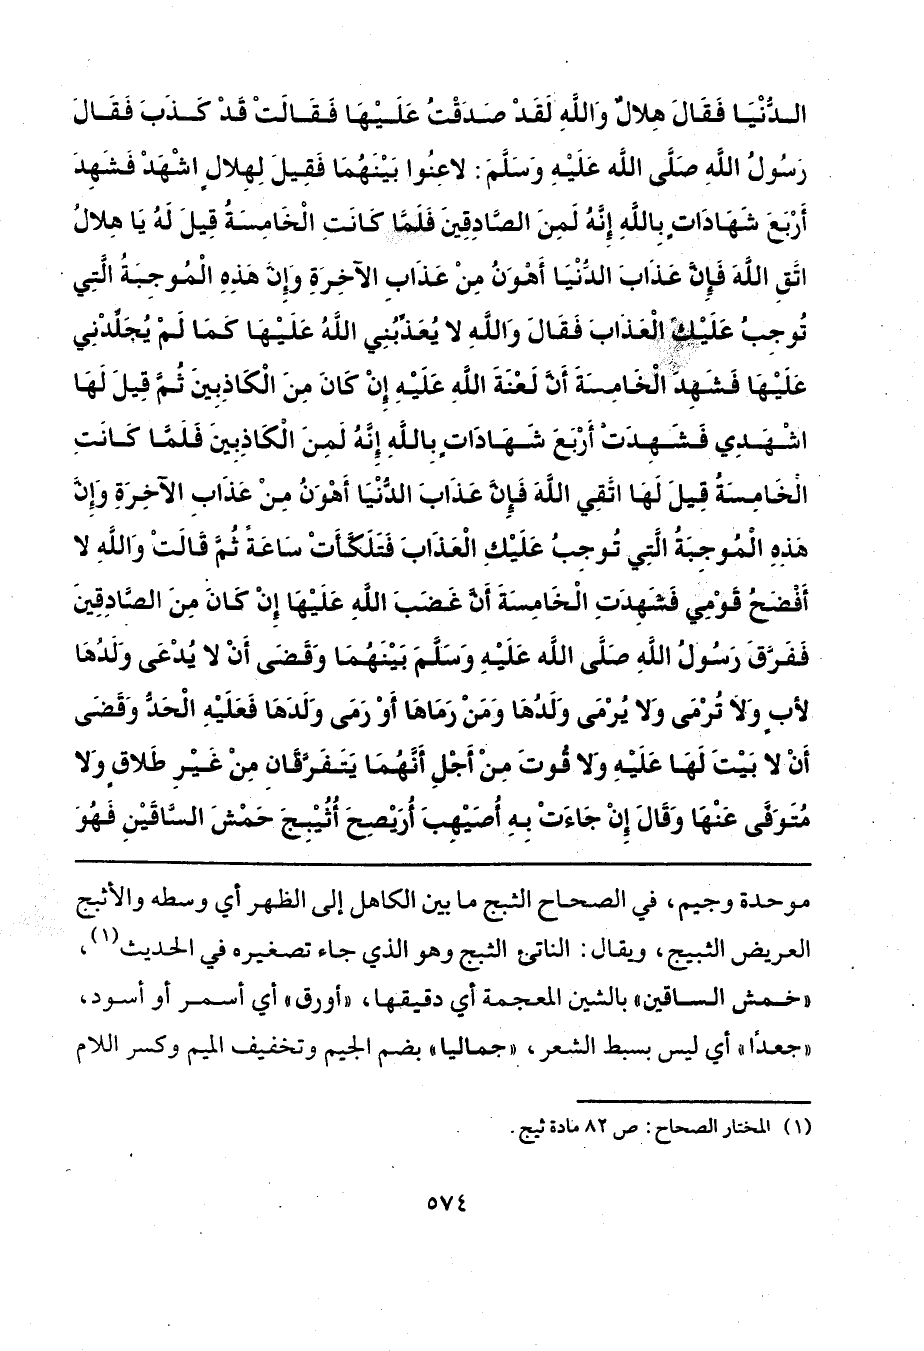 الدُّنْيَا فَقَالَ هِلالٌ وَاللَّهِ لَقَدْ صَدَقْتُ عَلَيْهَا فَقَالَتْ قَدْ كَذَبَ فَقَالَ
رَسُولُ اللَّهِ صَلَّى الله عَلَيْهِ وَسَلَّمَ: لاعِنُوا بَيْنَهُمَا فَقِيلَ لِهِلالٍ اشْهَدْ فَشَهِدَ
أَرْبَعَ شَهَادَاتٍ بِاللَّهِ إِنَّهُ لَمِنَ الصَّادِقِينَ فَلَمَّا كَانَتِ الْخَامِسَةُ قِيلَ لَهُ يَا هِلالُ
اتَّقِ اللَّهَ فَإِنَّ عَذَابَ الدُّنْيَا أَهْوَنُ مِنْ عَذَابِ الآخِرَةِ وَإِنَّ هَذِهِ الْمُوجِبَةُ الَّتِي
تُوجِبُ عَلَيْكَ الْعَذَابَ فَقَالَ وَاللَّهِ لا يُعَذِّبُنِي اللَّهُ عَلَيْهَا كَمَا لَمْ يُجَلِّدْنِي
عَلَيْهَا فَشَهِدَ الْخَامِسَةَ أَنَّ لَعْنَةَ اللَّهِ عَلَيْهِ إِنْ كَانَ مِنَ الْكَاذِبِينَ ثُمَّ قِيلَ لَهَا
اشْهَدِي فَشَهِدَتْ أَرْبَعَ شَهَادَاتٍ بِاللَّهِ إِنَّهُ لَمِنَ الْكَاذِبِينَ فَلَمَّا كَانَتِ
الْخَامِسَةُ قِيلَ لَهَا اتَّقِي اللَّهَ فَإِنَّ عَذَابَ الدُّنْيَا أَهْوَنُ مِنْ عَذَابِ الآخِرَةِ وَإِنَّ
هَذِهِ الْمُوجِبَةُ الَّتِي تُوجِبُ عَلَيْكِ الْعَذَابَ فَتَلَكَّأَتْ سَاعَةً ثُمَّ قَالَتْ وَاللَّهِ لا
أَفْضَحُ قَوْمِي فَشَهِدَتِ الْخَامِسَةَ أَنَّ غَضَبَ اللَّهِ عَلَيْهَا إِنْ كَانَ مِنَ الصَّادِقِينَ
فَفَرَّقَ رَسُولُ اللَّهِ صَلَّى الله عَلَيْهِ وَسَلَّمَ بَيْنَهُمَا وَقَضَى أَنْ لا يُدْعَى وَلَدُهَا
لأَبٍ وَلاَ تُرْمَى وَلا يُرْمَى وَلَدُهَا وَمَنْ رَمَاهَا أَوْ رَمَى وَلَدَهَا فَعَلَيْهِ الْحَدُّ وَقَضَى
أَنْ لا بَيْتَ لَهَا عَلَيْهِ وَلا قُوتَ مِنْ أَجْلِ أَنَّهُمَا يَتَفَرَّقَانِ مِنْ غَيْرِ طَلاقٍ وَلا
مُتَوَفَّى عَنْهَا وَقَالَ إِنْ جَاءَتْ بِهِ أُصَيْهِبَ أُرَيْصِحَ أُثَيْبِجَ حَمْشَ السَّاقَيْنِ فَهُوَ
موحدة وجيم، في الصحاح الثبج ما بين الكاهل إلى الظهر أي وسطه والأثبج
العريض الثبيج، ويقال: الناتئ الثبج وهو الذي جاء تصغيره في الحديث(١)،
«خمش الساقين» بالشين المعجمة أي دقيقها، «أورق» أي أسمر أو أسود،
«جعدًا» أي ليس بسبط الشعر، «جماليا» بضم الجيم وتخفيف الميم وكسر اللام
(١) المختار الصحاح: ص ٨٢ مادة ثبج.
٥٧٤